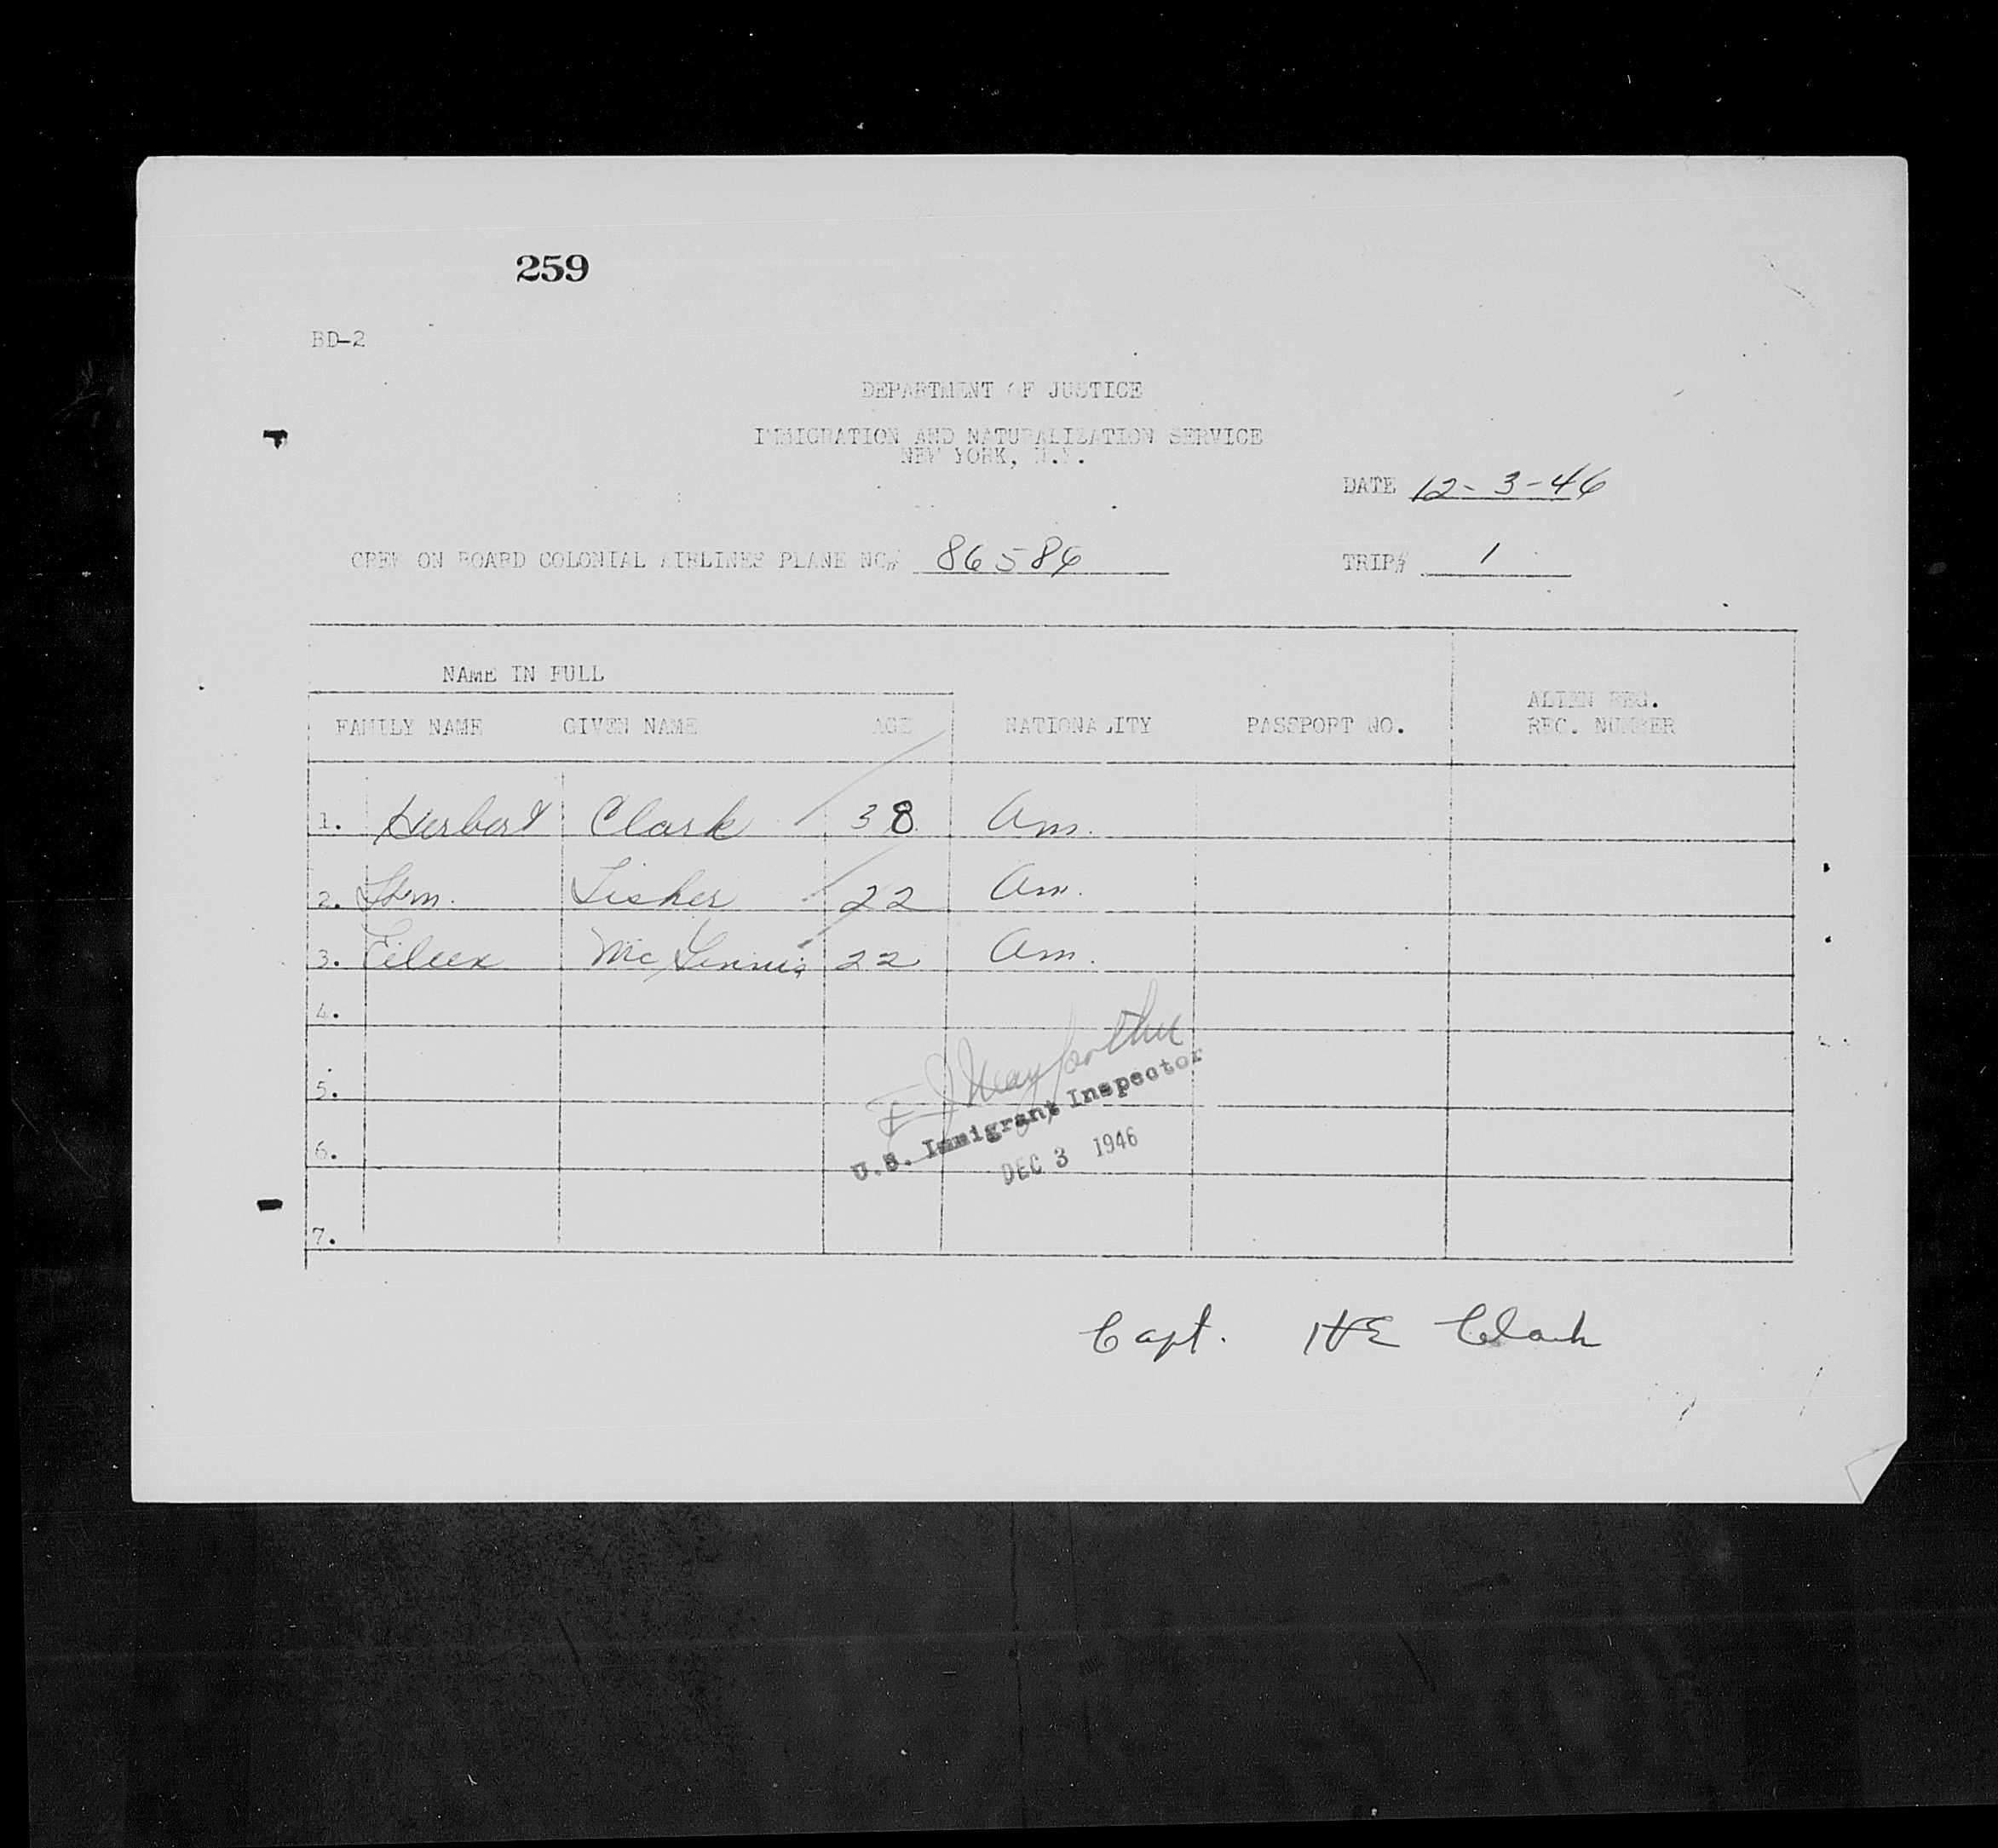 259
BD-2
DEPARTMENT OF JUSTICE
IMMIGRATION AND NATURALIZATION SERVICE
NEW YORK, N.Y.
DATE 12-3-46
CREW ON BOARD COLONIAL AIRLINES PLANE NO# 86586
TRIP# 1
NAME IN FULL
FAMILY NAME GIVEN NAME AGE NATIONALITY PASSPORT NO. ALIEN REG. REC. NUMBER
1. Herbert Clark 38 Am.
2. Wm. Fisher 22 Am.
3. Eileen 22 Am.
4.
5.
6.
7.
U.S. Immigrant Inspector
DEC 3 1946
Capt. HE Clark